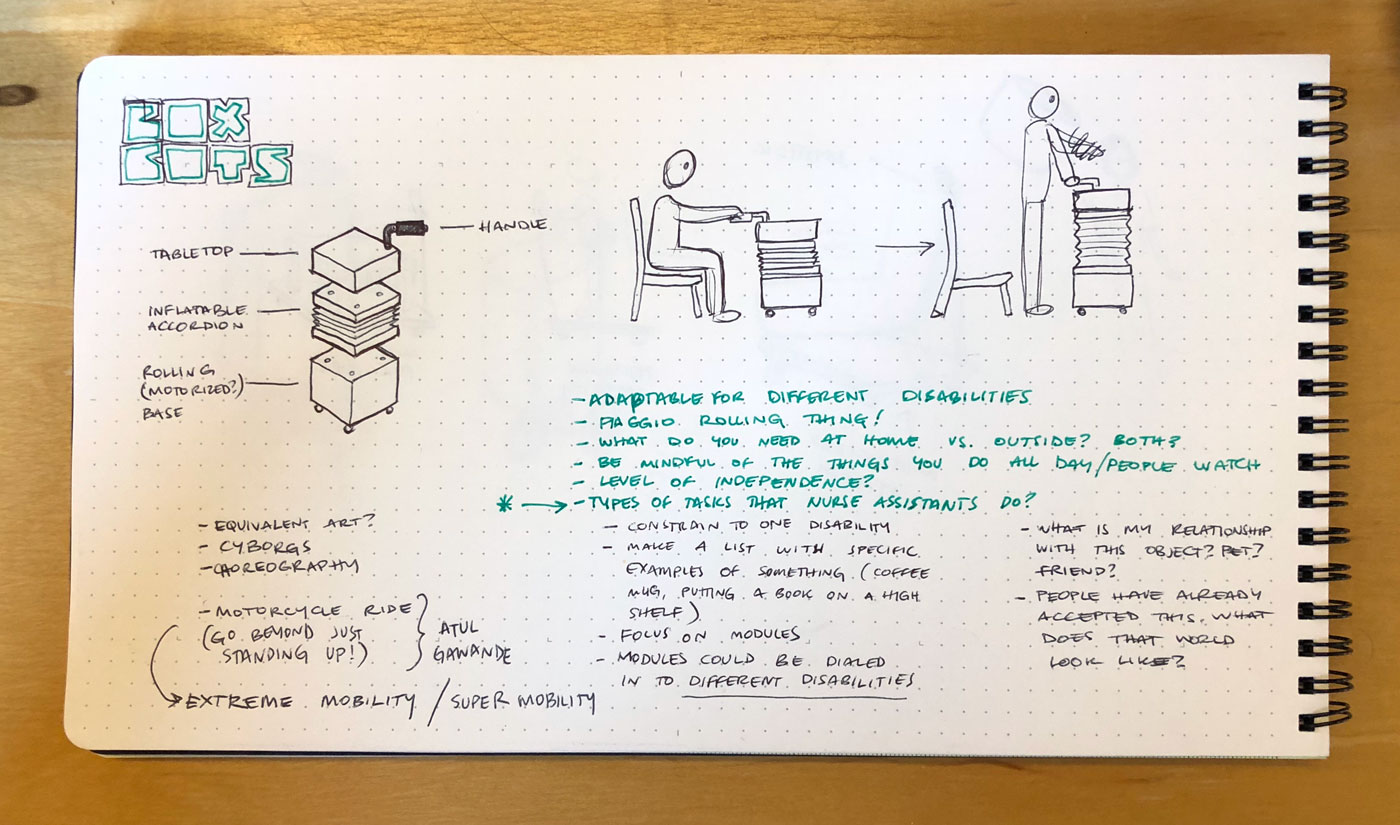 BOX
BOTS
TABLETOP
HANDLE
INFLATABLE
ACCORDION
ROLLING
(MOTORIZED?)
BASE
- ADAPTABLE FOR DIFFERENT DISABILITIES
- PIAGGIO ROLLING THING!
- WHAT DO YOU NEED AT HOME VS. OUTSIDE? BOTH?
- BE MINDFUL OF THE THINGS YOU DO ALL DAY/PEOPLE WATCH
- LEVEL OF INDEPENDENCE?
* → - TYPES OF TASKS THAT NURSE ASSISTANTS DO?
- EQUIVALENT ART?
- CYBORGS
- CHOREOGRAPHY
- MOTORCYCLE RIDE
(GO BEYOND JUST
STANDING UP!)
ATUL
GAWANDE
EXTREME MOBILITY / SUPER MOBILITY
- CONSTRAIN TO ONE DISABILITY
- MAKE A LIST WITH SPECIFIC
EXAMPLES OF SOMETHING (COFFEE
MUG, PUTTING A BOOK ON A HIGH
SHELF)
- FOCUS ON MODULES
- MODULES COULD BE DIALED
IN TO DIFFERENT DISABILITIES
- WHAT IS MY RELATIONSHIP
WITH THIS OBJECT? PET?
FRIEND?
- PEOPLE HAVE ALREADY
ACCEPTED THIS. WHAT
DOES THAT WORLD
LOOK LIKE?